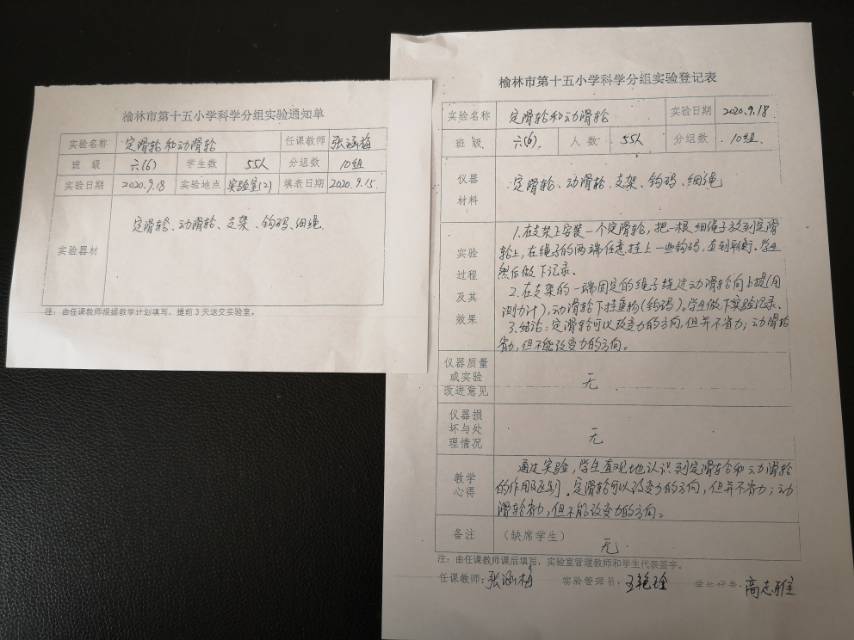 榆林市第十五小学科学分组实验通知单
实验名称 定滑轮和动滑轮 任课教师 张涵梅
班级 六(6) 学生数 55人 分组数 10组
实验日期 2020.9.18 实验地点 实验室(2) 填表日期 2020.9.15
实验器材 定滑轮、动滑轮、支架、钩码、细绳.
注：由任课教师根据教学计划填写，提前3天送交实验室。
榆林市第十五小学科学分组实验登记表
实验名称 定滑轮和动滑轮 实验日期 2020.9.18
班级 六(6). 人数 55人 分组数 10组.
仪器
材料
定滑轮、动滑轮、支架、钩码、细绳
实验
过程
及其
效果
1.在支架上安装一个定滑轮，把一根细绳子放到定滑
轮上，在绳子的两端任意挂上一些钩码，直到平衡。学生
然后做下记录.
2.在支架的一端固定的绳子绕过动滑轮向上提(用
测力计)，动滑轮下挂重物(钩码)。学生做下实验记录.
3.结论：定滑轮可以改变力的方向，但并不省力；动滑轮
省力，但不能改变力的方向。
仪器质量
或实验
改进意见
无
仪器损
坏与处
理情况
无
教学
心得
通过实验，学生直观地认识到定滑轮和动滑轮
的作用区别.定滑轮可以改变力的方向，但并不省力；动
滑轮省力，但不能改变力的方向。
备注 (缺席学生) 无
注：由任课教师课后填写，实验室管理教师和学生代表签字。
任课教师：张涵梅 实验管理员：王艳 学生代表：高志雅